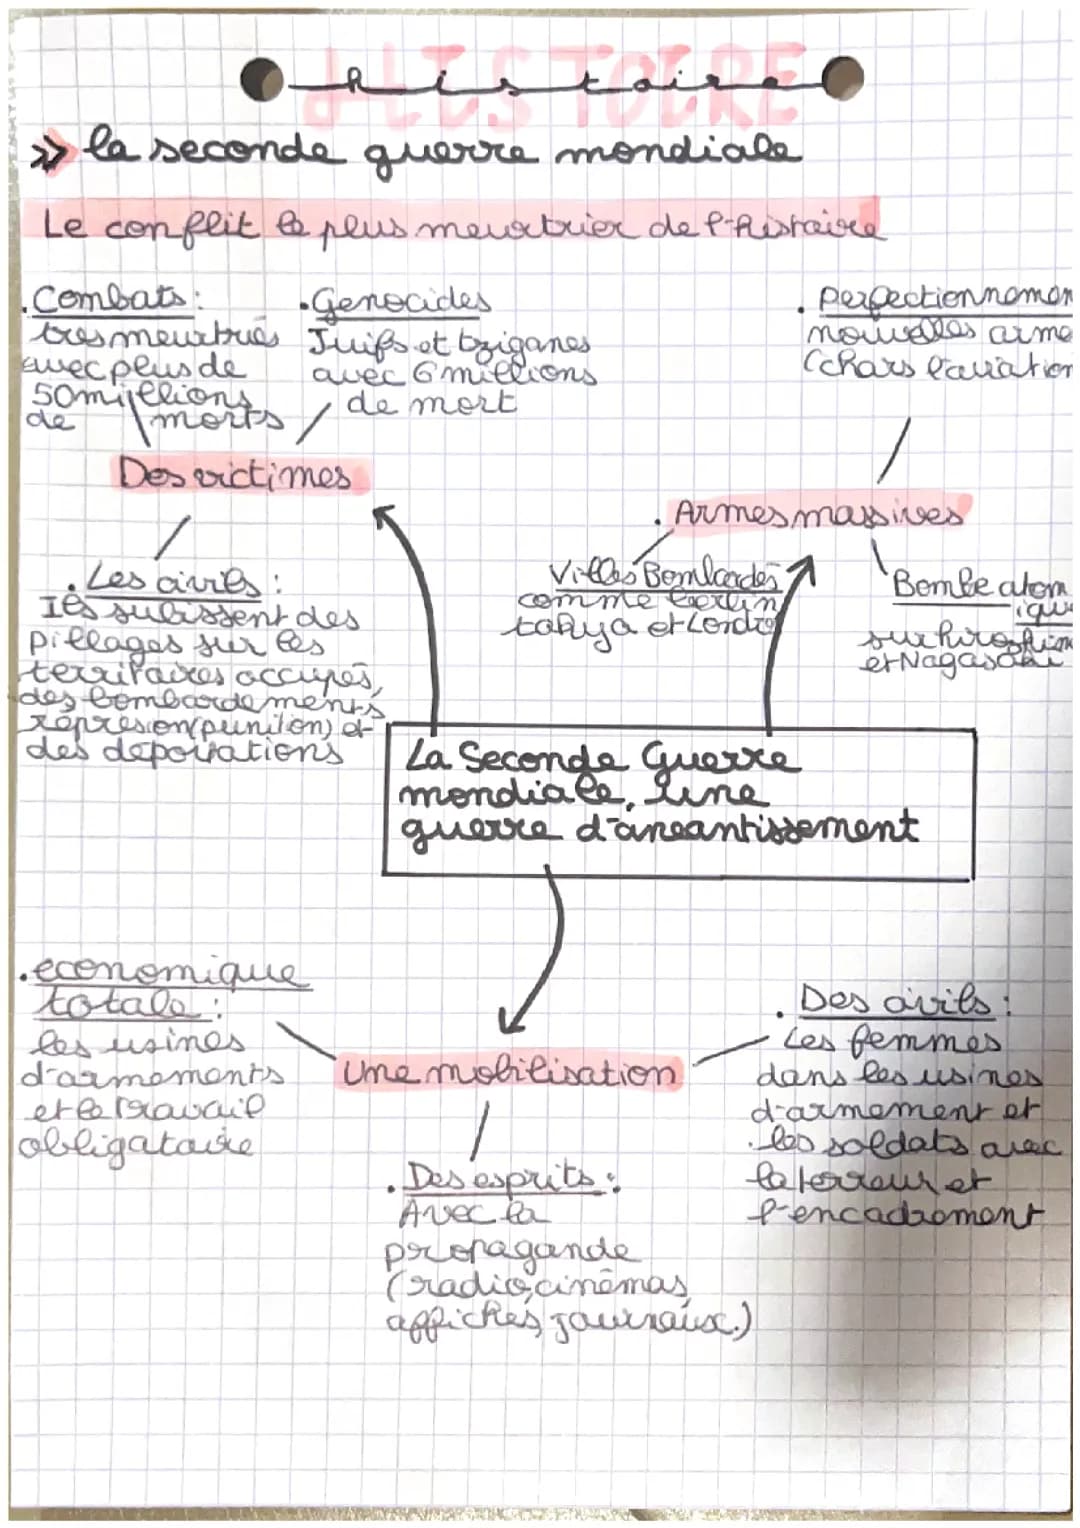 HISTOIRE
histoire
>> la seconde guerre mondiale
Le conflit le plus meurtrier de l'histoire
. Combats :
tres meurtriés
avec plus de
50 millions
de morts
. Genocides
Juifs et tziganes
avec 6 millions
de mort
. perfectionnemen
nouvelles arme
(chars l'aviation
Des victimes
. Armes massives
. Les civils :
Ils subissent des
pillages sur les
territoires occupés,
des bombardements,
répresion (punition) et
des déportations
Villes Bombardés
comme berlin
tokyo et Londre
Bombe atom
ique
sur hiroshim
et Nagasaki
La Seconde Guerre
mondiale, une
guerre d'aneantissement
. economique
totale :
les usines
d'armements
et le travail
obligatoire
Une mobilisation
. Des civils :
Les femmes
dans les usines
d'armement et
. les soldats avec
la terreur et
l'encadrement
. Des esprits :
Avec la
propagande
(radio, cinémas,
affiches, journaux.)